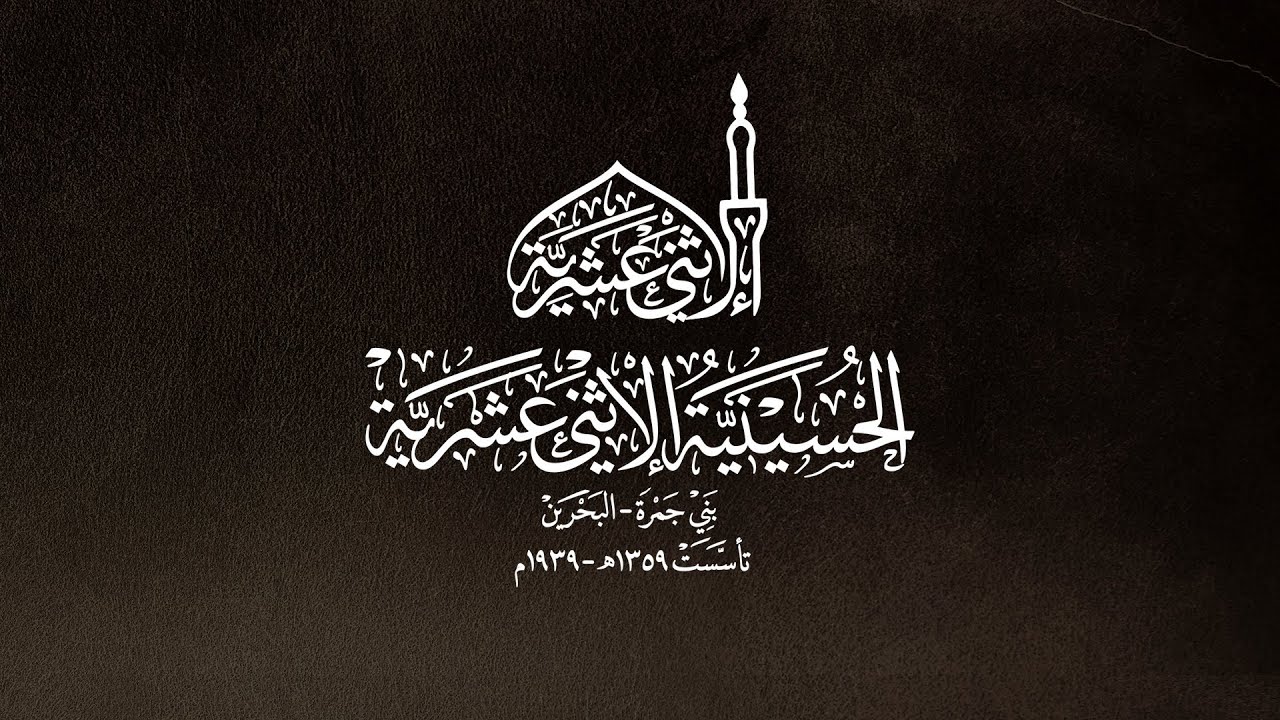 الإثني عشرية
الحُسَينيَّةُ الإثنَي عَشَريَّة
بَنِي جَمْرَة - البَحْرَين
تأسَّسَتْ ١٣٥٩هـ - ١٩٣٩م